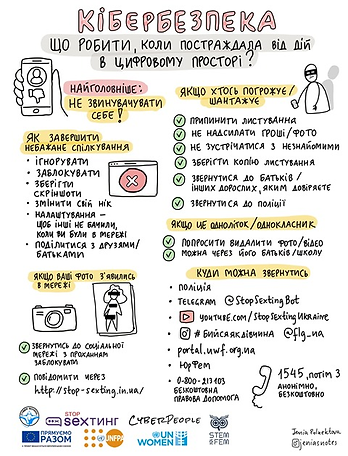 КІБЕРБЕЗПЕКА
ЩО РОБИТИ, КОЛИ ПОСТРАЖДАЛА ВІД ДІЙ
В ЦИФРОВОМУ ПРОСТОРІ?
НАЙГОЛОВНІШЕ:
НЕ ЗВИНУВАЧУВАТИ
СЕБЕ!
ЯК ЗАВЕРШИТИ
НЕБАЖАНЕ СПІЛКУВАННЯ
• ІГНОРУВАТИ
• ЗАБЛОКУВАТИ
• ЗБЕРЕГТИ
СКРІНШОТИ
• ЗМІНИТИ СВІЙ НІК
• НАЛАШТУВАННЯ –
ЩОБ ІНШІ НЕ БАЧИЛИ,
КОЛИ ВИ БУЛИ В МЕРЕЖІ
• ПОДІЛИТИСЯ З ДРУЗЯМИ/
БАТЬКАМИ
ЯКЩО ХТОСЬ ПОГРОЖУЄ/
ШАНТАЖУЄ
ПРИПИНИТИ ЛИСТУВАННЯ
НЕ НАДСИЛАТИ ГРОШІ/ФОТО
НЕ ЗУСТРІЧАТИСЯ З НЕЗНАЙОМИМИ
ЗБЕРІГТИ КОПІЮ ЛИСТУВАННЯ
ЗВЕРНУТИСЯ ДО БАТЬКІВ/
ІНШИХ ДОРОСЛИХ, ЯКИМ ДОВІРЯЄТЕ
ЗВЕРНУТИСЯ ДО ПОЛІЦІЇ
ЯКЩО ЦЕ ОДНОЛІТОК/ОДНОКЛАСНИК
ПОПРОСИТИ ВИДАЛИТИ ФОТО/ВІДЕО
МОЖНА ЧЕРЕЗ ЙОГО БАТЬКІВ/ШКОЛУ
ЯКЩО ВАШІ ФОТО З'ЯВИЛИСЬ
В МЕРЕЖІ
ЗВЕРНУТИСЬ ДО СОЦІАЛЬНОЇ
МЕРЕЖІ З ПРОХАННЯМ
ЗАБЛОКУВАТИ
ПОВІДОМИТИ ЧЕРЕЗ
http://stop-sexting.in.ua/
КУДИ МОЖНА ЗВЕРНУТИСЬ
• ПОЛІЦІЯ
• TELEGRAM @StopSextingBot
• YOUTUBE.COM/STOPSEXTINGUKRAINE
• # БИЙСЯЯКДІВЧИНА @flg_ua
• portal.uwf.org.ua
• ЮрФем
0-800-213103
БЕЗКОШТОВНА
ПРАВОВА ДОПОМОГА
1545, потім 3
АНОНІМНО,
БЕЗКОШТОВНО
STOP
SEXТИНГ
CYBERPEOPLE
STEM
&FEM
ПРЯМУЄМО
РАЗОМ
UNFPA
UN
WOMEN
Jenia Polosktova
@jeniasnotes